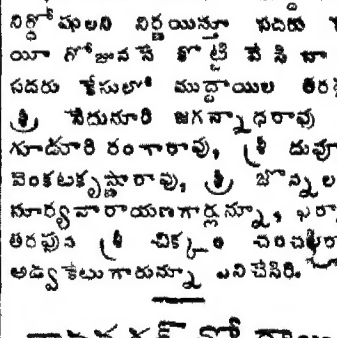 నిర్దోషులని నిర్ణయిస్తూ సదరు
యీ గోజునసే కొట్టి వేసినా
సదరు కేసులో ముద్దాయిల తరఫ
శ్రీ నేదునూరి జగన్నాధరావు
గూడూరి రంగారావు, శ్రీ దువూ
వెంకటకృష్ణారావు, శ్రీ జొన్నల
సూర్యనారాయణగార్లున్నూ, ఖరా
తరఫున శ్రీ చిక్కం
అడ్వకేటుగారున్నూ పనిచేసిరి.